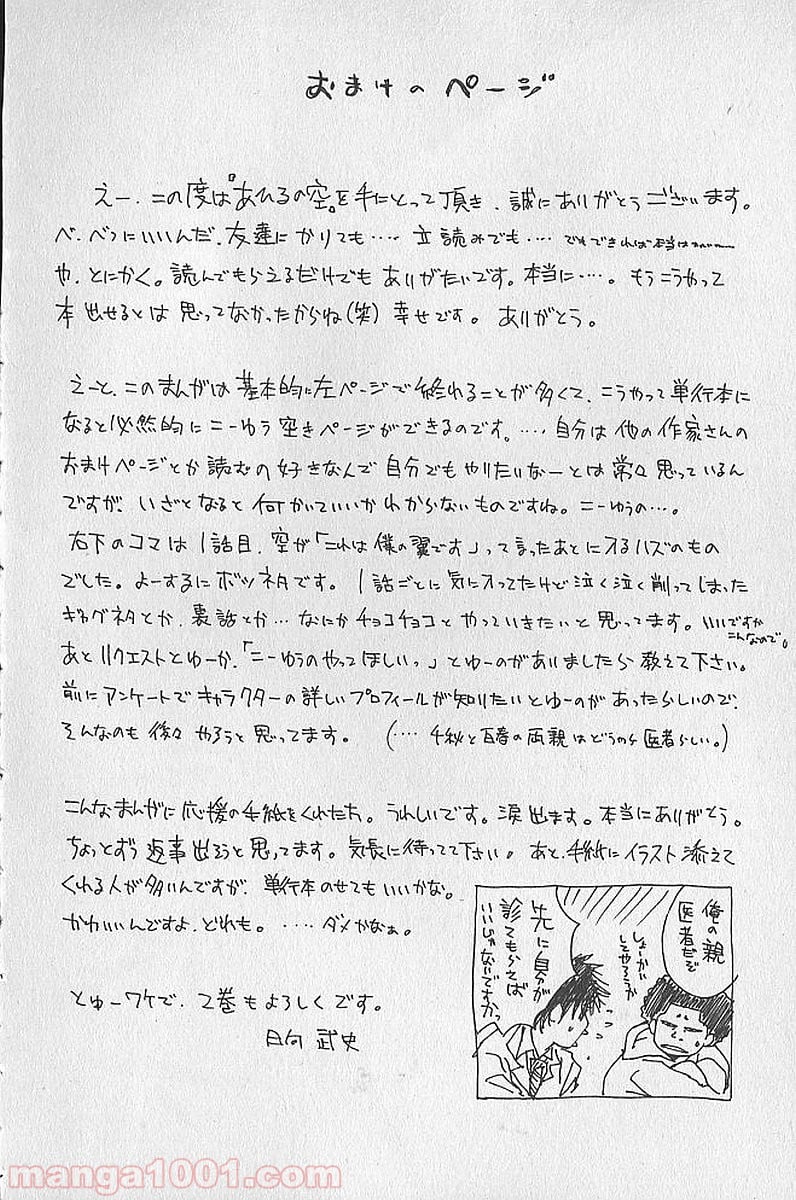 おまけのページ
えー、この度は『あひるの空』を手にとって頂き、誠にありがとうございます。
べ、べつにいいんだ、友達にかりても‥‥立読みでも‥‥でもできれば本当は
や、とにかく。読んでもらえるだけでもありがたいです。本当に‥‥。もうこうやって
本出せるとは思ってなかったからね(笑)幸せです。ありがとう。
えーと、このまんがは基本的に左ページで終わることが多くて、こうやって単行本に
なると必然的にこーゆう空きページができるのです。‥‥自分は他の作家さんの
おまけページとか読むの好きなんで自分でもやりたいなーとは常々思っているん
ですが、いざとなると何かいていいかわからないものですね。こーゆうの‥‥。
右下のコマは1話目、空が「これは僕の翼です」って言ったあとに入るハズのもの
でした。よーするにボツネタです。1話ごとに気に入ってたけど泣く泣く削ってしまった
ギャグネタとか、裏話とか…なにかチョコチョコとやっていきたいと思ってます。いいですか
こんなので。
あとリクエストとゆーか、「こーゆうのやってほしいっ」とゆーのがありましたら教えて下さい。
前にアンケートでキャラクターの詳しいプロフィールが知りたいとゆーのがあったらしいので、
そんなのも後々やろうと思ってます。(‥‥千秋と百春の両親はどうやら医者らしい。)
こんなまんがに応援の手紙をくれたたち。うれしいです。涙出ます。本当にありがとう。
ちょっとずつ返事出そうと思ってます。気長に待ってて下さい。あと、手紙にイラスト添えて
くれる人が多いんですが、単行本のせてもいいかな。
かわいいんですよ、どれも。‥‥ダメかなぁ。
とゆーワケで、2巻もよろしくです。
日向武史
俺の親
医者だぞ
しょーかい
してやろうか
先に自分が
診てもらえば
いいじゃないですかっ
manga1001.com